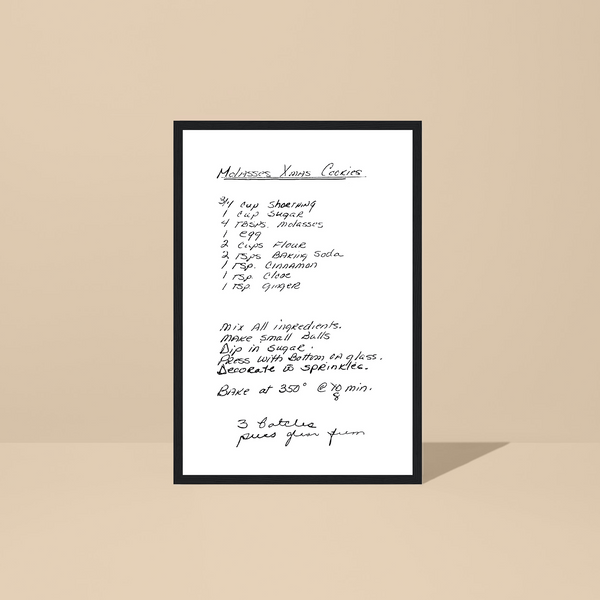 Molasses Xmas Cookies
3/4 cup Shortning
1 cup Sugar
4 TBSPS. Molasses
1 egg
2 cups Flour
2 TSPS Baking Soda
1 TSP. Cinnamon
1 TSP. Clove
1 TSP. Ginger
Mix All ingredients.
Make small Balls
Dip in Sugar.
Press with Bottom of glass.
Decorate w sprinkles.
Bake at 350° @ 10 min.
8
3 batches